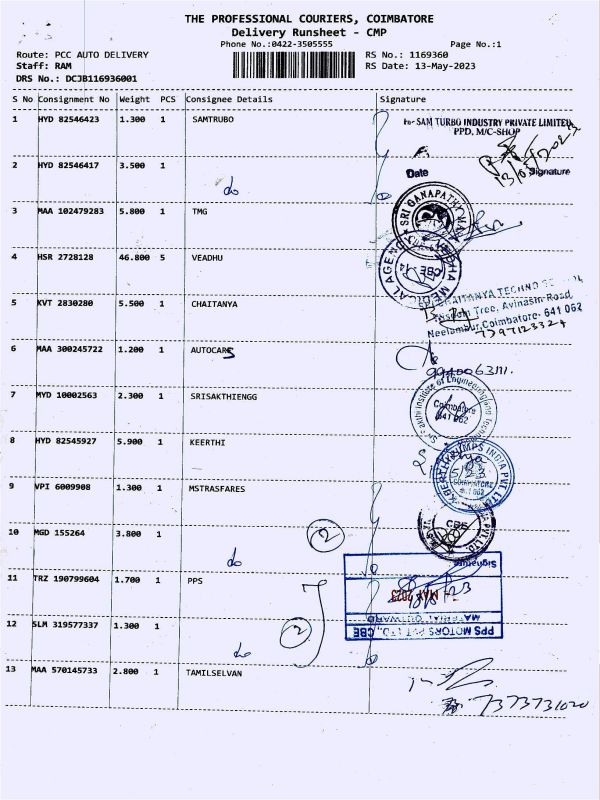 THE PROFESSIONAL COURIERS, COIMBATORE
Delivery Runsheet - CMP
Phone No.:0422-3505555 Page No.:1
Route: PCC AUTO DELIVERY RS No.: 1169360
Staff: RAM RS Date: 13-May-2023
DRS No.: DCJB116936001
S No Consignment No Weight PCS Consignee Details Signature
1 HYD 82546423 1.300 1 SAMTRUBO
For SAM TURBO INDUSTRY PRIVATE LIMITED
PPD, M/C-SHOP
2 HYD 82546417 3.500 1 do
Date Signature
3 MAA 102479283 5.800 1 TMG
SRI GANAPATHY
4 HSR 2728128 46.800 5 VEADHU
MEDICAL AGENC
CBE
5 KVT 2830280 5.500 1 CHAITANYA
CHAITANYA TECHNO
Tree, Avinashi Road,
Neelambur, Coimbatore- 641 062
7397123324
6 MAA 300245722 1.200 1 AUTOCARS
9940063111.
7 MYD 10002563 2.300 1 SRISAKTHIENGG
Institute of Engineering and
Coimbatore
641 062
8 HYD 82545927 5.900 1 KEERTHI
KEERTHI PUMPS INDIA PVT. LTD
COIMBATORE
641 062
9 VPI 6009908 1.300 1 MSTRASFARES
CBE
10 MGD 155264 3.800 1 do
2
Signature
11 TRZ 190799604 1.700 1 PPS
MAY 2023
MATERIAL OUTWARD
PPS MOTORS PVT LTD., CBE
12 SLM 319577337 1.300 1 do
2
13 MAA 570145733 2.800 1 TAMILSELVAN
7373731020